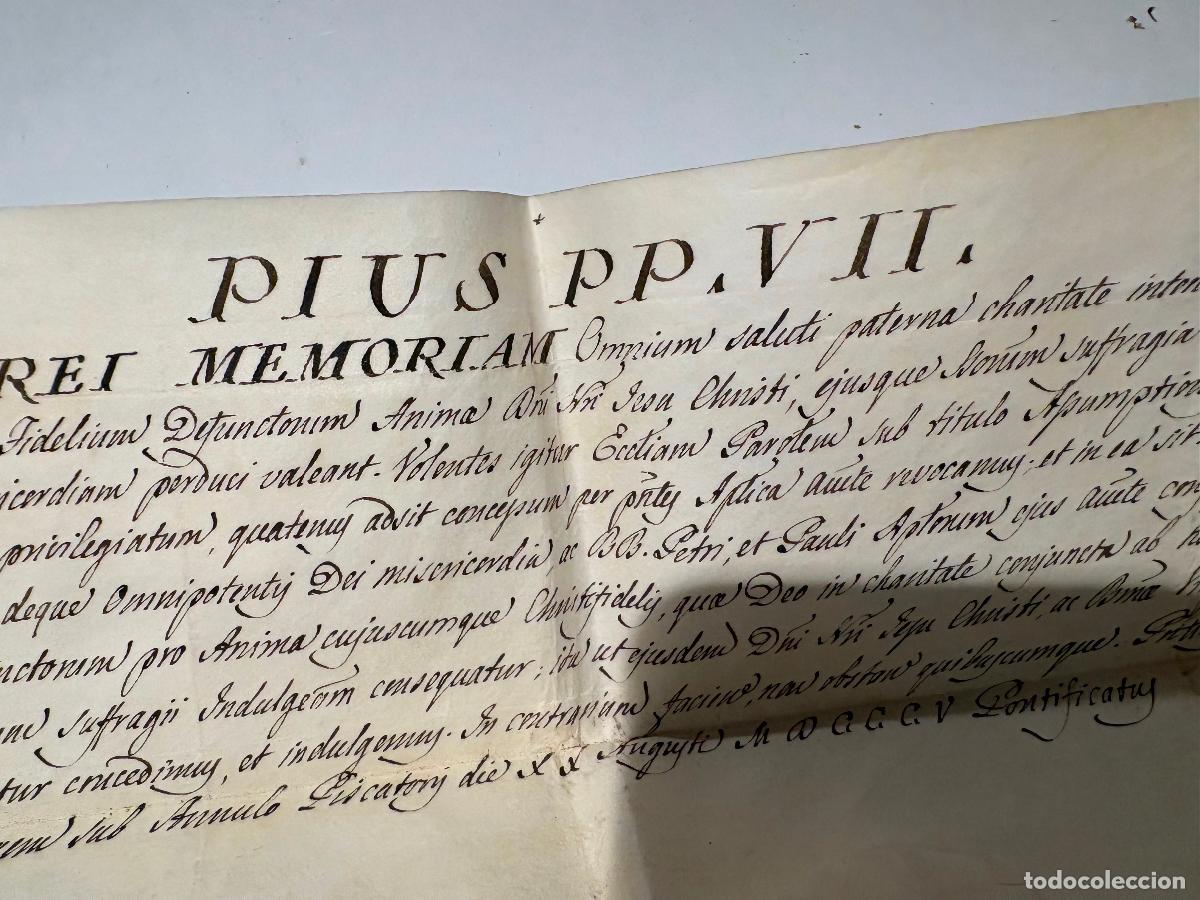 PIUS PP. VII.
REI MEMORIAM Omnium saluti paterna charitate inten
Fidelium Defunctorum Animæ Dñi Nri Jesu Christi, ejusque Storum suffragia
icordiam perduci valeant. Volentes igitur Eccliam Parolem sub titulo Assumption
privilegiatum, quatenus adsit concessum per pntes Aplica aucte revocamus; et in ea sit
deque Omnipotentis Dei misericordia, ac BB. Petri, et Pauli Aplorum ejus aucte con
nctorum pro Anima cujuscumque Christifidelis, quæ Deo in charitate conjuncta ab h
um suffragii Indulgeom consequatur; ita ut ejusdem Dni Nri Jesu Christi, ac Bmæ
tur concedimus, et indulgemus. In contrarium facien, non obston quibuscumque.
sub Annulo Piscatoris die XX Augusti MDCCCV Pontificatus
todocoleccion